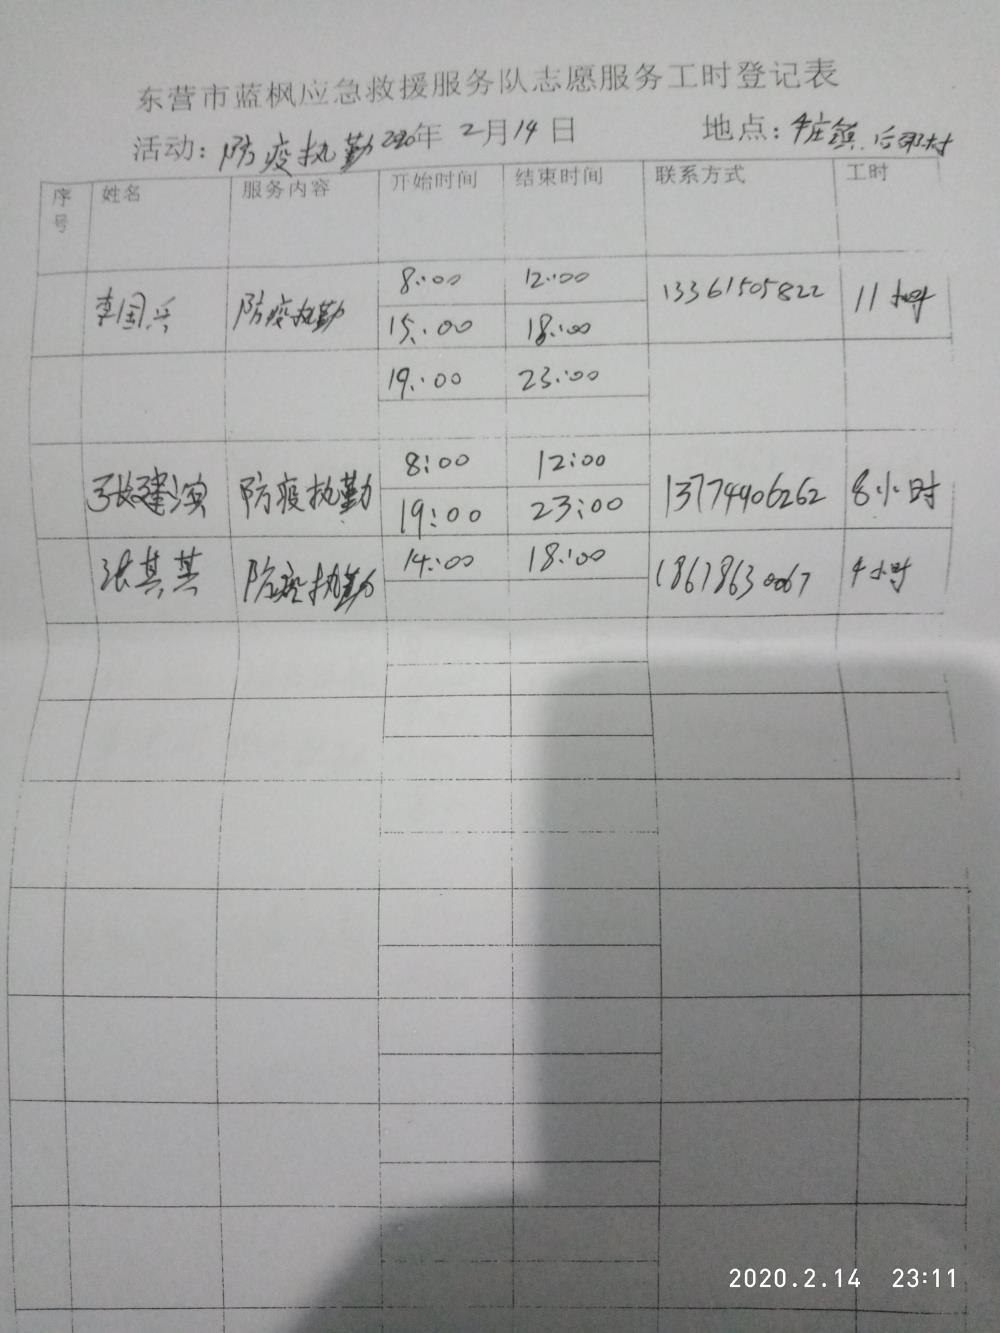 东营市蓝枫应急救援服务队志愿服务工时登记表
活动：防疫执勤 2020年 2月14日 地点：牛庄镇 后邵村
序号 姓名 服务内容 开始时间 结束时间 联系方式 工时
李国兵 防疫执勤 8:00 12:00 13361505822 11小时
15:00 18:00
19:00 23:00
张建滨 防疫执勤 8:00 12:00 13774406262 8小时
19:00 23:00
张其其 防疫执勤 14:00 18:00 18678630067 4小时
2020.2.14 23:11